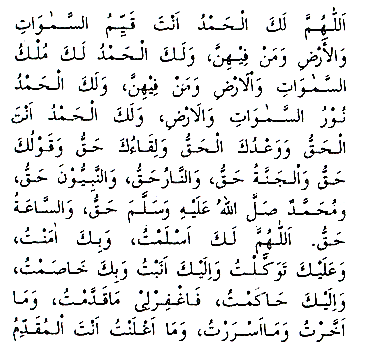 اَللّٰهُمَّ لَكَ الْحَمْدُ اَنْتَ قَيِّمُ السَّمٰوَاتِ
وَالْأَرْضِ وَمَنْ فِيْهِنَّ، وَلَكَ الْحَمْدُ لَكَ مُلْكُ
السَّمٰوَاتِ وَالْاَرْضِ وَمَنْ فِيْهِنَّ، وَلَكَ الْحَمْدُ
نُوْرُ السَّمٰوَاتِ وَالْاَرْضِ، وَلَكَ الْحَمْدُ اَنْتَ
الْحَقُّ وَوَعْدُكَ الْحَقُّ وَلِقَاءُكَ حَقٌّ وَقَوْلُكَ
حَقٌّ وَالْجَنَّةُ حَقٌّ، وَالنَّارُحَقٌّ، وَالنَّبِيُّوْنَ حَقٌّ،
ومُحَمَّدٌ صَلَّ اللهُ عَلَيْهِ وَسَلَّمَ حَقٌّ، وَالسَّاعَةُ
حَقٌّ. اَللّٰهُمَّ لَكَ اَسْلَمْتُ، وَبِكَ اٰمَنْتُ،
وَعَلَيْكَ تَوَكَّلْتُ وَاِلَيْكَ اَنَبْتُ وَبِكَ خَاصَمْتُ،
وَاِلَيْكَ حَاكَمْتُ، فَاغْفِرْلِيْ مَاقَدَّمْتُ، وَمَا
اَخَّرْتُ وَمَااَسْرَرْتُ، وَمَا اَعْلَنْتُ اَنْتَ الْمُقَدِّمُ